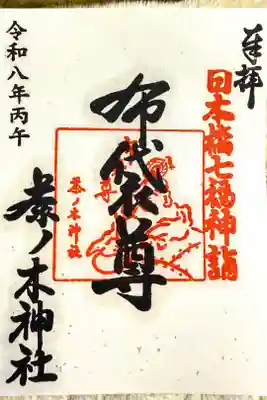 奉拝
日本橋七福神詣
布代袋尊
茶ノ木神社
茶ノ木神社
令和八年丙午